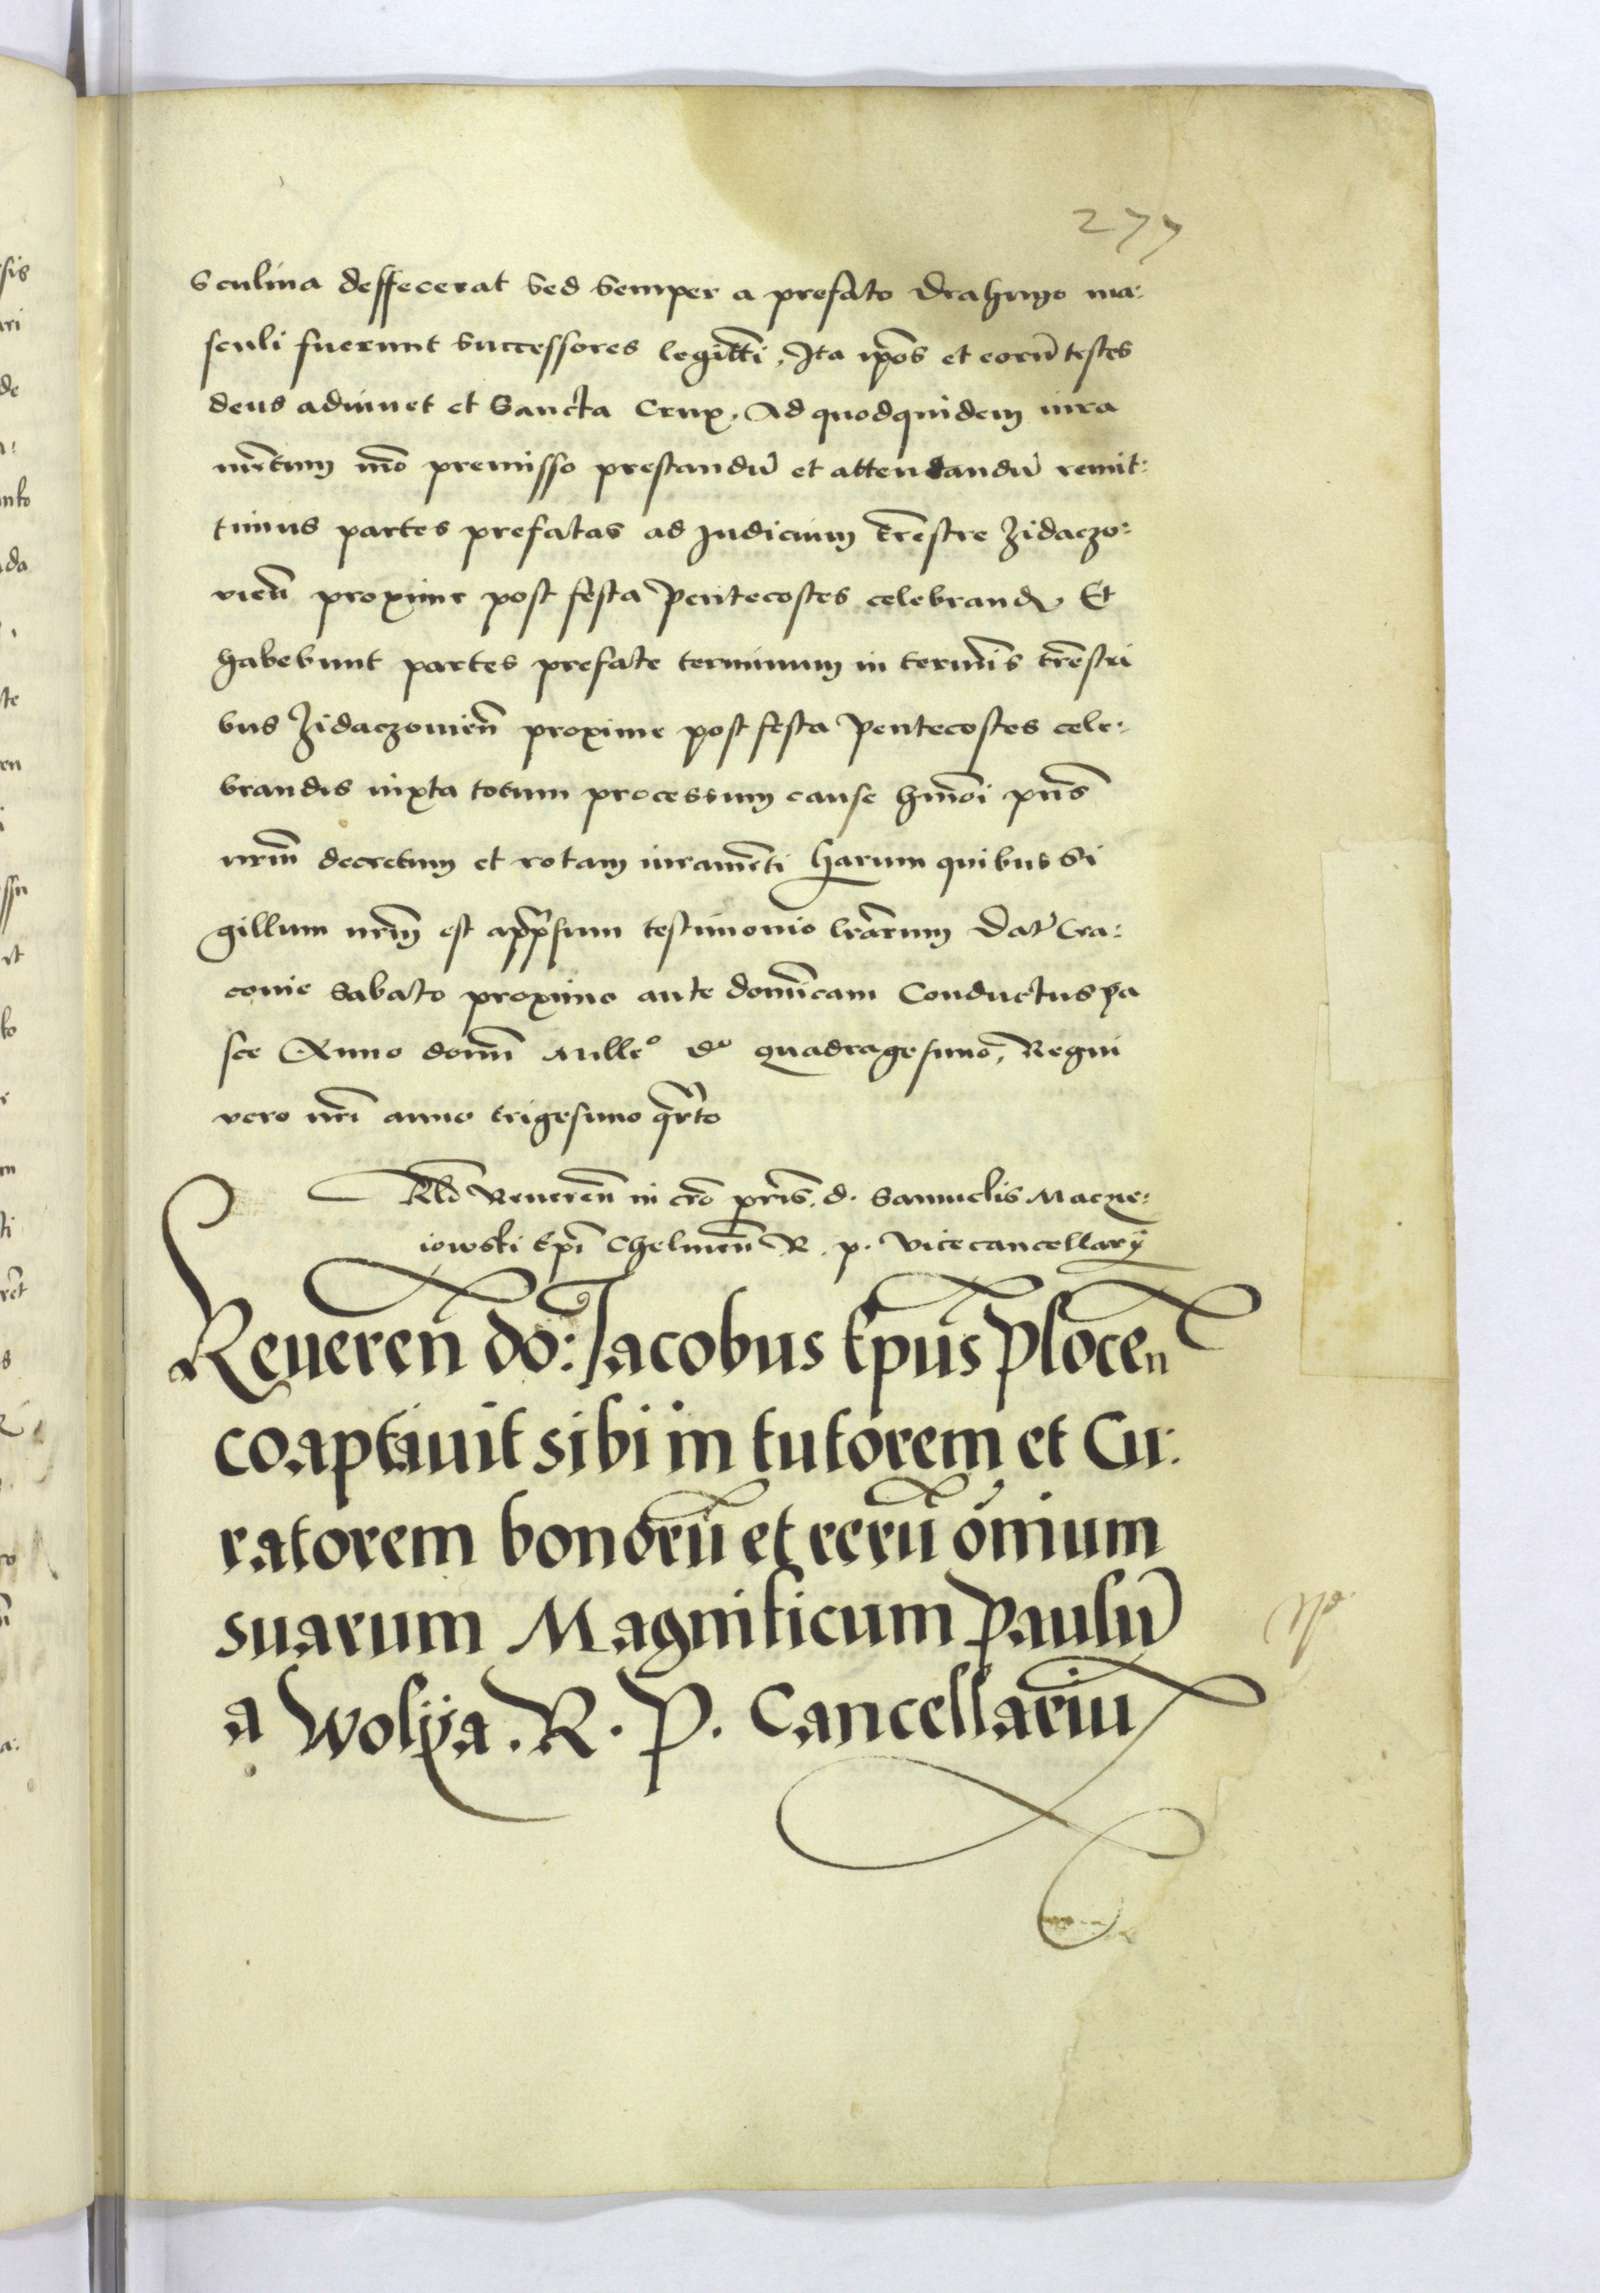 277
sculina deffecerat sed semper a prefato Drahnyo ma:
sculi fuerunt successores legitti. Ita ip̄os et eorū testes
deus adiuuet et Sancta Crux. Ad quodquidem iura
mētum mō premisso prestandū et attentandū remit:
timus partes prefatas ad Judicium trēstre Zidaczo:
vien̄ proxime post festa Pentecostes celebrand. Et
habebunt partes prefate terminum in termīs trēstri
bus Zidaczouien̄ proxime post festa Pentecostes cele:
brandis iuxta totum processum cause hmōi p̄ns
nrm̄ decretum et rotam iuramēti Harum quibus Si
gillum nrm̄ est app̄ssum testimonio lr̄arum Dat Cra:
couie Sabato proximo ante domīcam Conductus pa
sce Anno domī Mille° d° quadragesimo, Regni
vero nr̄i anno trigesimo qr̄to
Rlō Reueren̄ in cr̄o pr̄is. d. Samuelis Macze:
iowski Ep̄i Chelmen̄ R. p. Vicecancellarÿ
Reueren̄ do: Jacobus Ep̄us Plocen̄
coaptauit sibi in tutorem et Cu:
ratorem bonorū et rerū om̄ium
suarum Magnificum Paulū
a Wolÿa. R. P. Cancellariū